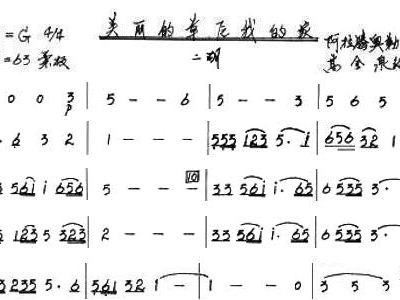 = G 4/4 美丽的草原我的家 阿拉腾奥勒
= 63 柔板 二胡
0 0 3 | 5 - - 6 | 5 - - 3 | 5 6 5
p
· 6 3 2 | 1 - - - | 555 123 5· i | 656 32 1
10
3 561 i 656 | 5 - - - | 33 561 i· 65 | 6 535 3·
123 5 323 | 2 - - - | 33 561 i· 65 | 6 535 3·
3235 5· 6 | 561 32 1 - | 1 - - 0 | 3 5 3